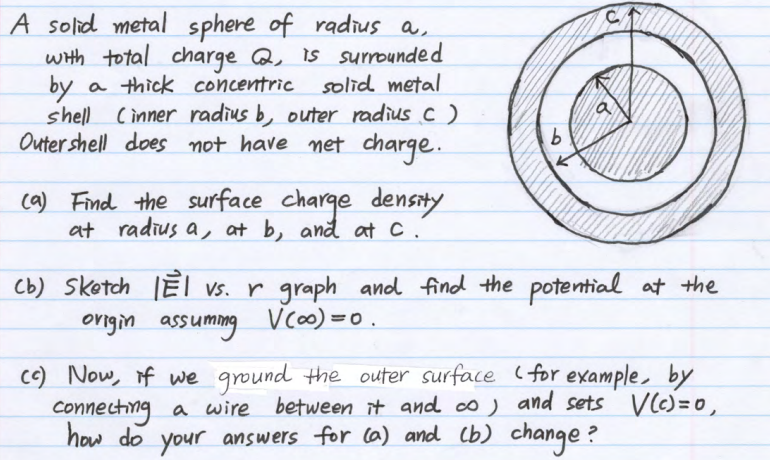 A solid metal sphere of radius a,
with total charge Q, is surrounded
by a thick concentric solid metal
shell (inner radius b, outer radius c)
Outer shell does not have net charge.
(a) Find the surface charge density
at radius a, at b, and at c.
(b) Sketch |E⃗| vs. r graph and find the potential at the
origin assuming V(∞)=0.
(c) Now, if we ground the outer surface (for example, by
connecting a wire between it and ∞) and sets V(c)=0,
how do your answers for (a) and (b) change?
c
a
b